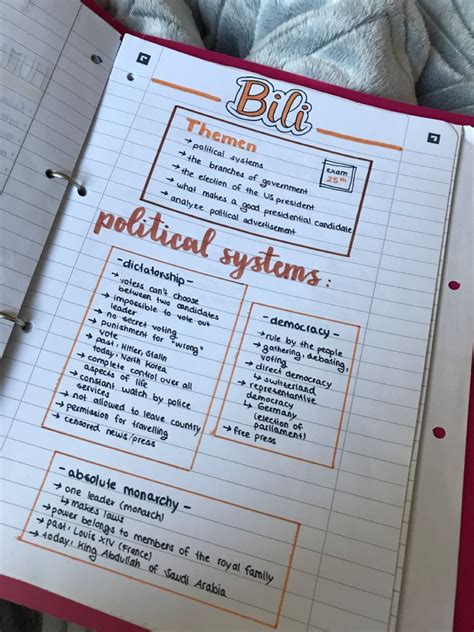 Bili
Themen
→ political systems
→ the branches of government
→ the election of the US president
→ what makes a good presidential candidate
→ analyze political advertisement
exam
25th
political systems:
- dictatorship -
→ voters can't choose
between two candidates
→ impossible to vote out
leader
→ no secret voting
→ punishment for "wrong"
vote
→ past: Hitler, Stalin
today: North Korea
→ complete control over all
aspects of life
→ constant watch by police
services
→ not allowed to leave country
→ permission for travelling
→ censored news/press
- democracy -
→ rule by the people
→ gathering, debating,
voting
→ direct democracy
↳ switzerland
→ representantive
democracy
↳ Germany
(election of
parliament)
→ free press
- absolute monarchy -
→ one leader (monarch)
↳ makes laws
→ power belongs to members of the royal family
→ past: Louis XIV (France)
→ today: King Abdullah of Saudi Arabia